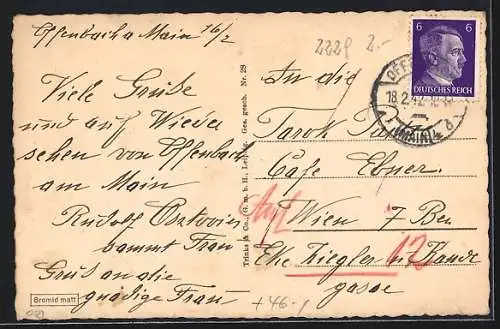 Offenbach a Main 16/2
Viele Grüße
und auf Wieder
sehen von Offenbach
am Main
Rudolf
sammt Frau
Gruß an die
gnädige Frau
Bromid matt
Trinks & Co., G. m. b. H., Leipzig. Ges. gesch. Nr. 28
2228 2.-
6 6
DEUTSCHES REICH
18.2.42
(MAIN) 4
An die
Tarok
Cafe Ebner
Wien 7 Bez
Eke Ziegler u Kande
gasse
12
+46-1